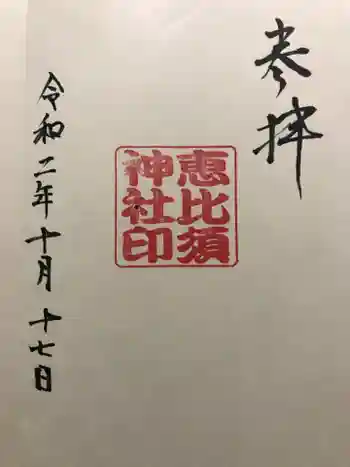 奉拝
恵比須
神社印
令和二年十月十七日